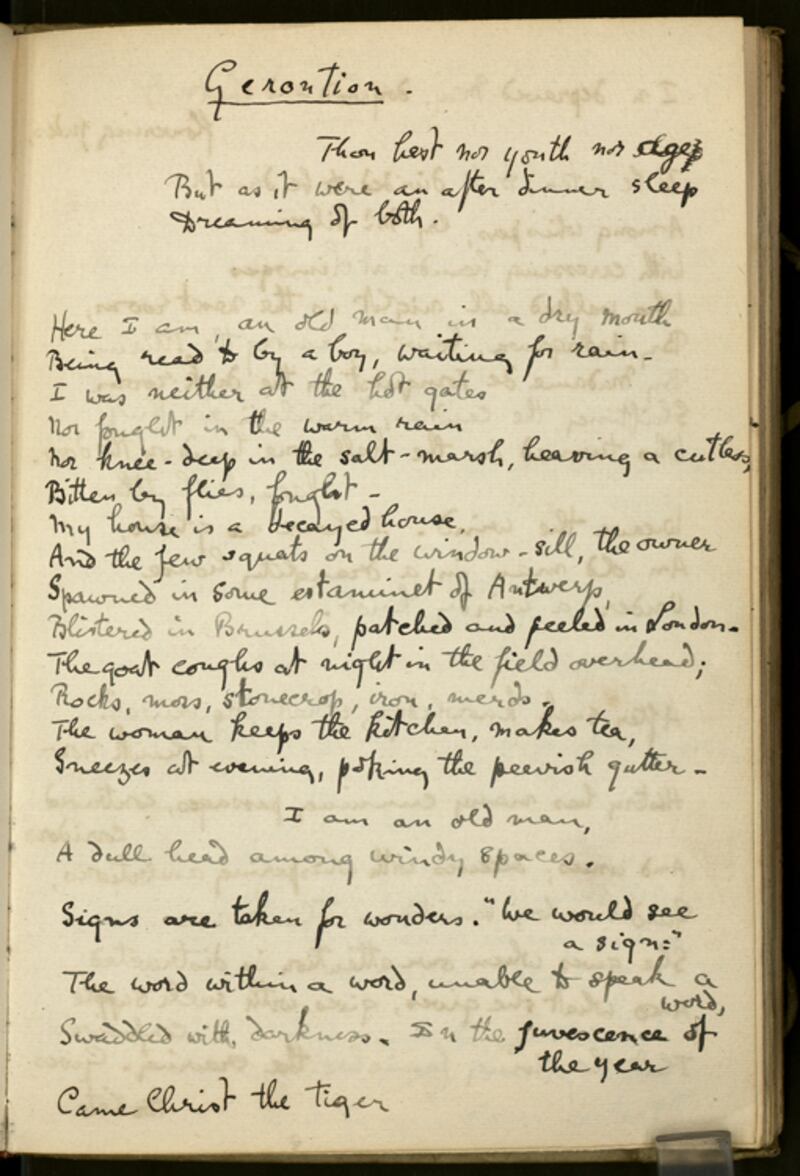 Gerontion.
Thou hast nor youth nor age
But as it were an after dinner sleep
Dreaming of both.
Here I am, an old man in a dry month
Being read to by a boy, waiting for rain.
I was neither at the hot gates
Nor fought in the warm rain
Nor knee-deep in the salt-marsh, heaving a cutlass,
Bitten by flies, fought -
My house is a decayed house,
And the jew squats on the window-sill, the owner
Spawned in some estaminet of Antwerp,
Blistered in Brussels, patched and peeled in London.
The goat coughs at night in the field overhead;
Rocks, moss, stonecrop, iron, merds.
The woman keeps the kitchen, makes tea,
Sneezes at evening, poking the peevish gutter -
I am an old man,
A dull head among windy spaces.
Signs are taken for wonders. "We would see
a sign:"
The word within a word, unable to speak a
word,
Swaddled with darkness. In the juvescence of
the year
Came Christ the tiger